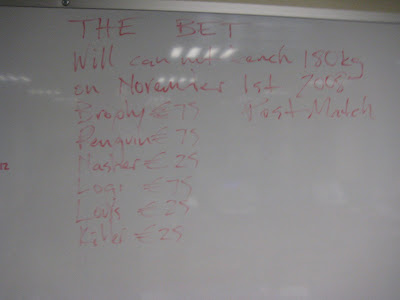 THE BET
Will can not each 180kg
on November 1st 2008
Brophy €75 Post Match
Penguin €75
Masher €25
Logi €75
Loys €25
Killer €25